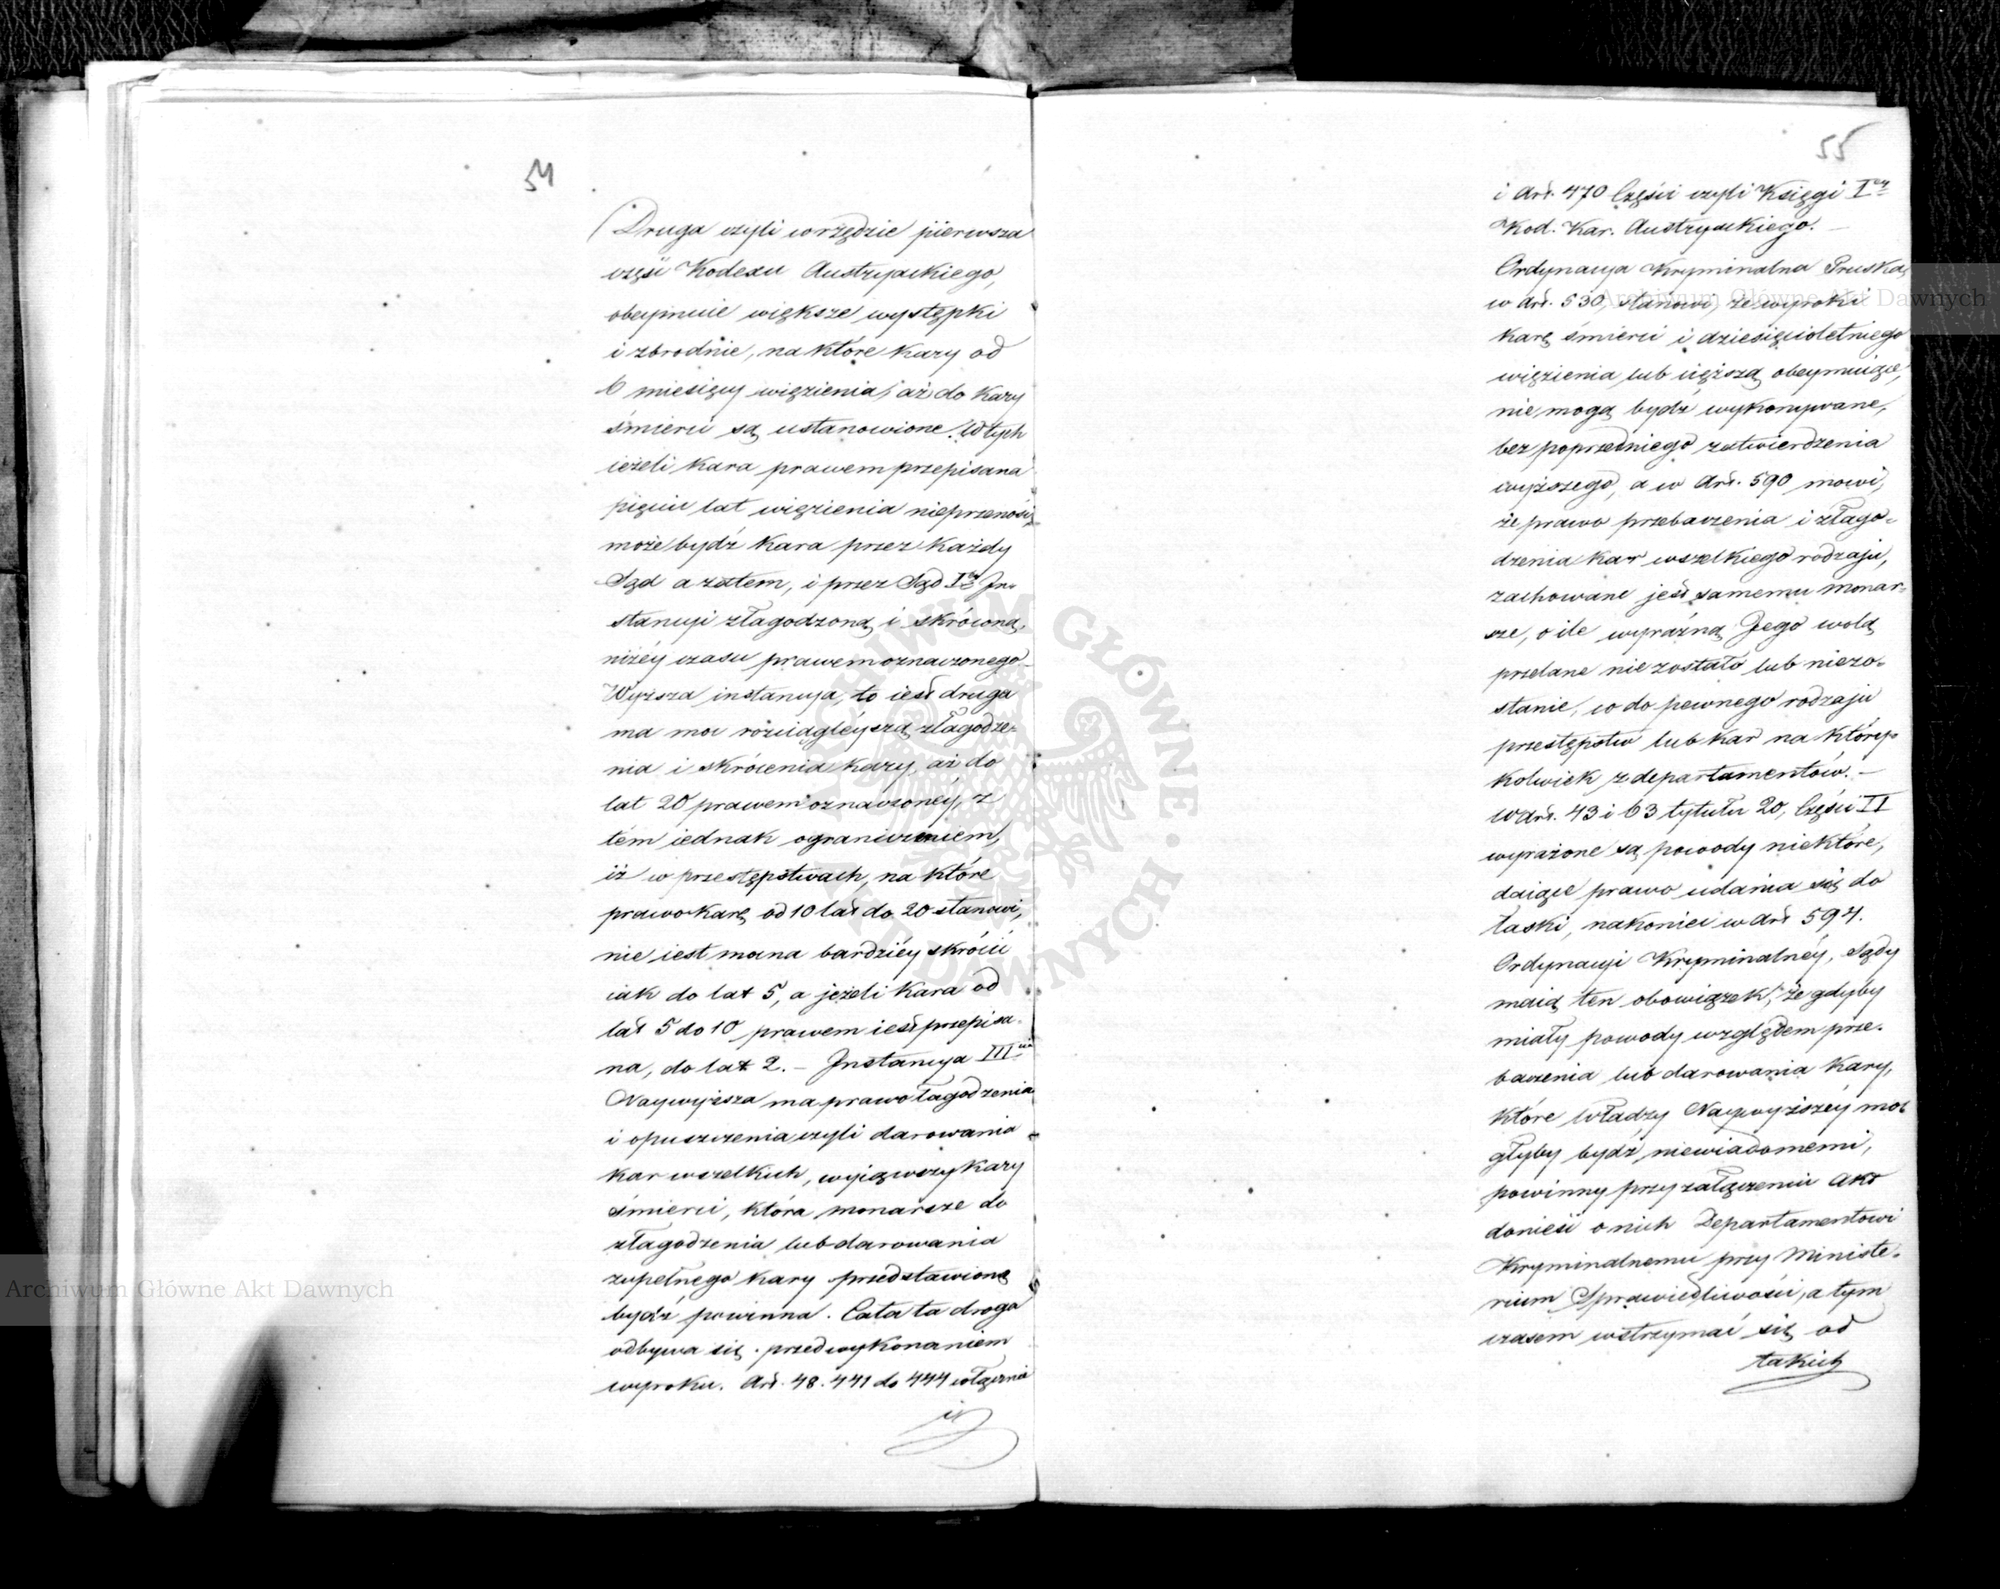 54
Druga czyli w rzędzie pierwsza
część Kodexu Austryackiego,
obeymuie większe występki
i zbrodnie, na które kary od
6 miesięcy więzienia, aż do kary
śmierci są ustanowione. W tych
ieżeli kara prawem przepisana
pięciu lat więzienia nieprzenosi,
może bydź kara przez każdy
Sąd a zatem, i przez Sąd Iey In-
stancyi złagodzoną i skróconą,
niżéy czasu prawem oznaczonego
Wyższa instancya, to iest druga
ma moc rozciągléyszą złagodze-
nia i skrócenia kary, aż do
lat 20 prawem oznaczonéy, z
tém iednak ograniczeniem,
iż w przestępstwach, na które
prawo karę od 10 lat do 20 stanowi,
nie iest mocna bardziéy skrócić
iak do lat 5, a jeżeli kara od
lat 5 do 10 prawem iest przepisa-
na, do lat 2. – Instancya III
Naywyższa ma prawo łagodzenia
i opuszczenia czyli darowania
kar wszelkich, wyiąwszy kary
śmierci, która monarsze do
złagodzenia lub darowania
zupełnego kary przedstawioną
bydź powinna. Cała ta droga
odbywa się przed wykonaniem
wyroku. Art. 48. 441 do 444 włącznie
i
55
i Art. 470 Części czyli Księgi Iey
Kod. Kar. Austryackiego. –
Ordynacya Kryminalna Pruska,
w Art. 530, stanowi, że wyroki
karę śmierci i dziesięcioletniego
więzienia lub cięższą obeymuiące,
nie mogą bydź wykonywane,
bez poprzedniego zatwierdzenia
wyższego, a w Art. 590 mowi,
że prawo przebaczenia i złago-
dzenia kar wszelkiego rodzaju,
zachowane jest samemu monar-
sze, o ile wyraźną Jego wolą
przelane nie zostało lub niezo-
stanie, co do pewnego rodzaju
przestępstw lub kar na który-
kolwiek z departamentów. –
W Art. 43 i 63 tytułu 20, Części II
wyrażone są powody niektóre,
daiące prawo udania się do
łaski, nakoniec w Art 594.
Ordynacyi Kryminalnéy, Sądy
maią ten obowiązek, że gdyby
miały powody względem prze-
baczenia lub darowania kary,
które władzy Naywyższéy mo-
głyby bydź niewiadomemi,
powinny przy załączeniu Akt
donieść o nich Departamentowi
Kryminalnemu przy Ministe-
rium Sprawiedliwości, a tym
czasem wstrzymać się od
takich
Archiwum Główne Akt Dawnych
Archiwum Główne Akt Dawnych
ARCHIWUM GŁÓWNE AKT DAWNYCH